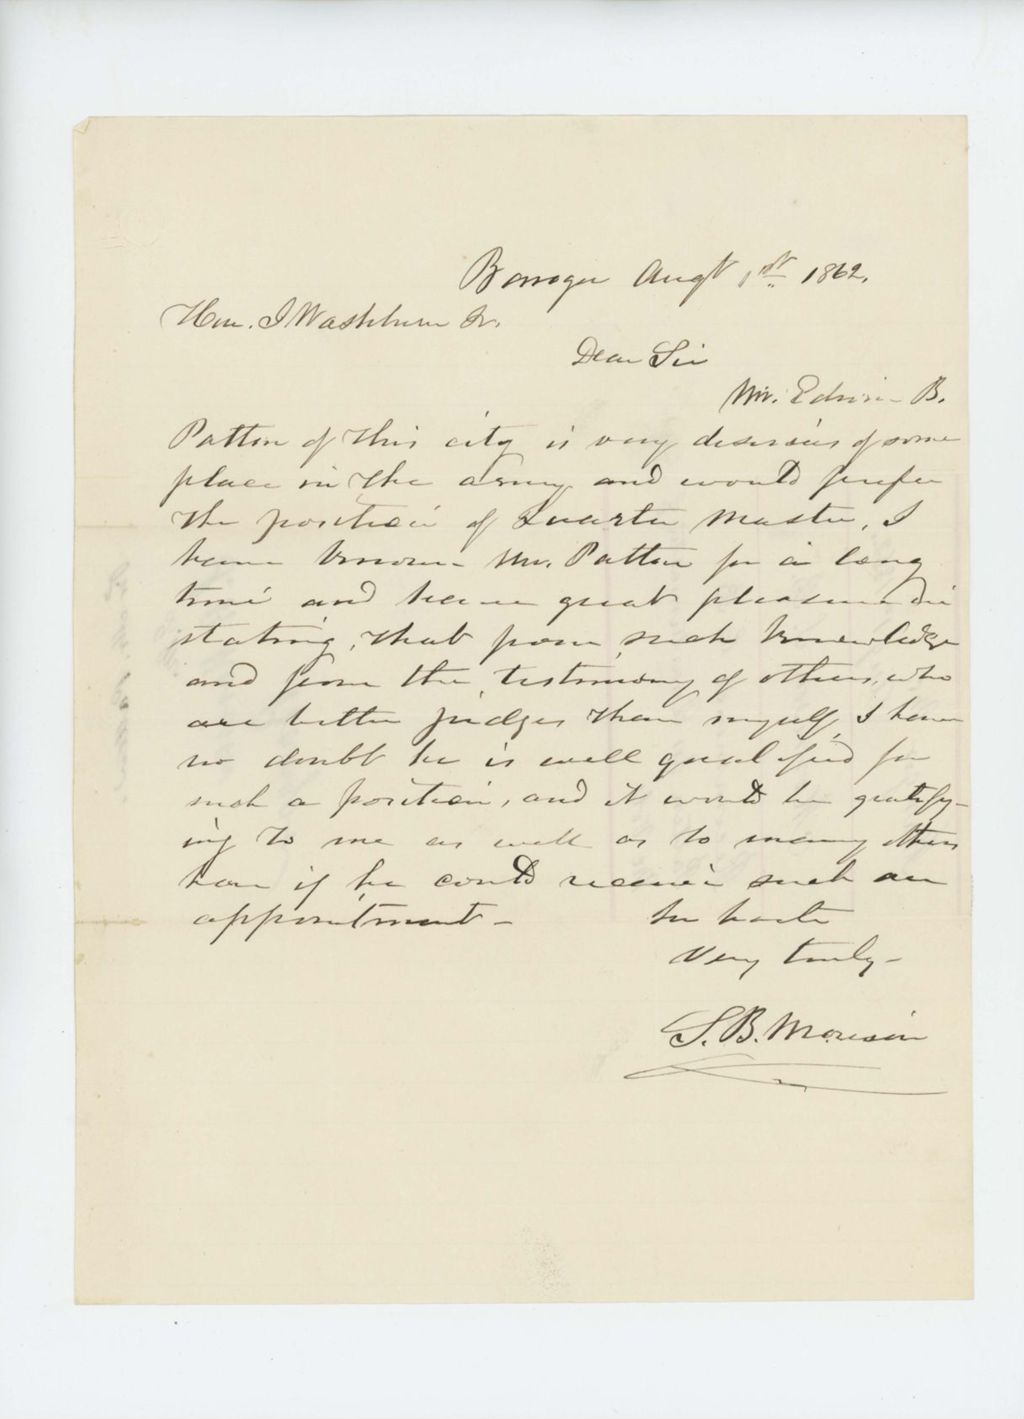 Bangor Augt 1st 1862.
Hon. I Washburn Jr.
Dear Sir
Mr. Edwin B.
Patten of this city is very desirous of some
place in the army and would prefer
the position of Quarter Master, I
have known Mr. Patten for a long
time and have great pleasure in
stating, that from such knowledge
and from the testimony of others, who
are better judges than myself, I have
no doubt he is well qualified for
such a position, and it would be gratify-
ing to me as well as to many others
here if he could receive such an
appointment -
In haste
Very truly -
S. B. Morison